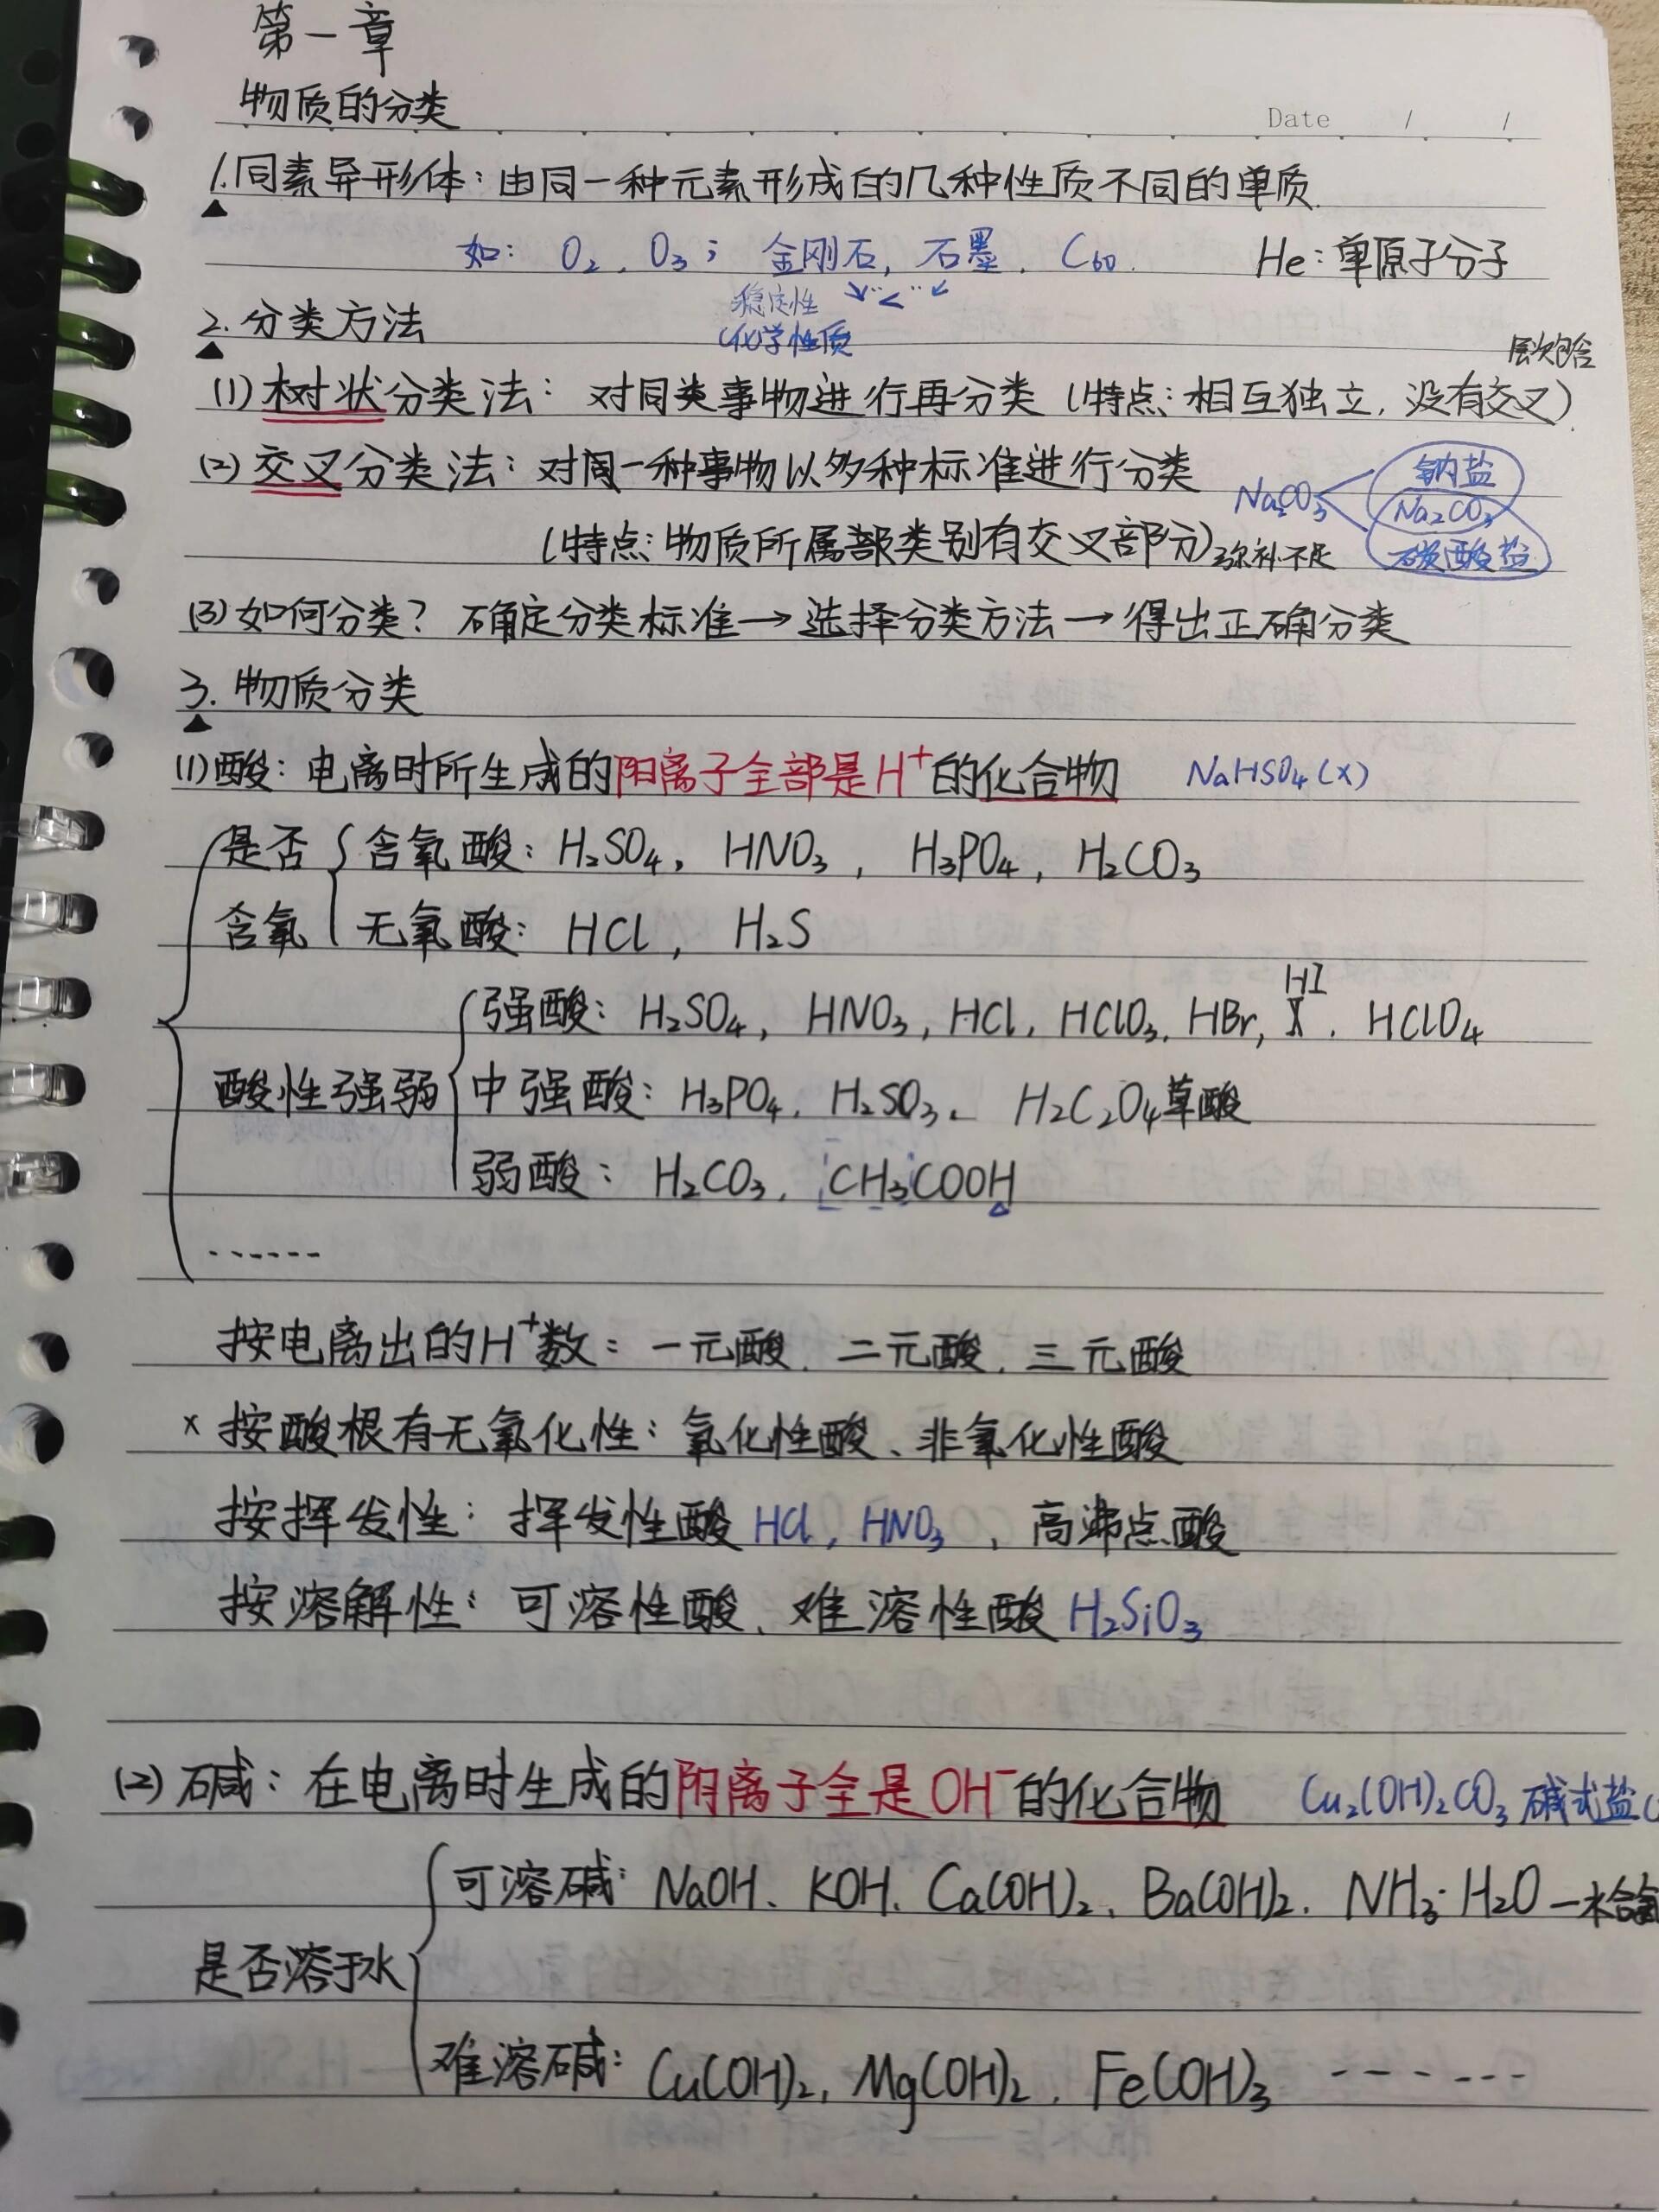 第一章
物质的分类
Date / /
1.同素异形体：由同一种元素形成的几种性质不同的单质.
如：O₂、O₃；金刚石，石墨、C₆₀. He：单原子分子
稳定性
化学性质
2.分类方法
层次包含
(1)树状分类法：对同类事物进行再分类（特点：相互独立，没有交叉）
(2)交叉分类法：对同一种事物以多种标准进行分类
Na₂CO₃ 钠盐
Na₂CO₃
碳酸盐
（特点：物质所属部类别有交叉部分）弥补不足
(3)如何分类？确定分类标准→选择分类方法→得出正确分类
3.物质分类
(1)酸：电离时所生成的阳离子全部是H⁺的化合物 NaHSO₄(×)
是否含氧 含氧酸：H₂SO₄，HNO₃，H₃PO₄，H₂CO₃
无氧酸：HCl，H₂S
HI
强酸：H₂SO₄，HNO₃，HCl，HClO₃，HBr，HClO₄
酸性强弱 中强酸：H₃PO₄、H₂SO₃、H₂C₂O₄草酸
弱酸：H₂CO₃、CH₃COOH
······
按电离出的H⁺数：一元酸、二元酸、三元酸
×按酸根有无氧化性：氧化性酸、非氧化性酸
按挥发性：挥发性酸 HCl，HNO₃、高沸点酸
按溶解性：可溶性酸、难溶性酸 H₂SiO₃
(2)碱：在电离时生成的阴离子全是OH⁻的化合物 Cu₂(OH)₂CO₃ 碱式盐(
可溶碱：NaOH、KOH、Ca(OH)₂、Ba(OH)₂、NH₃·H₂O 一水合氨
是否溶于水
难溶碱：Cu(OH)₂，Mg(OH)₂、Fe(OH)₃ ······